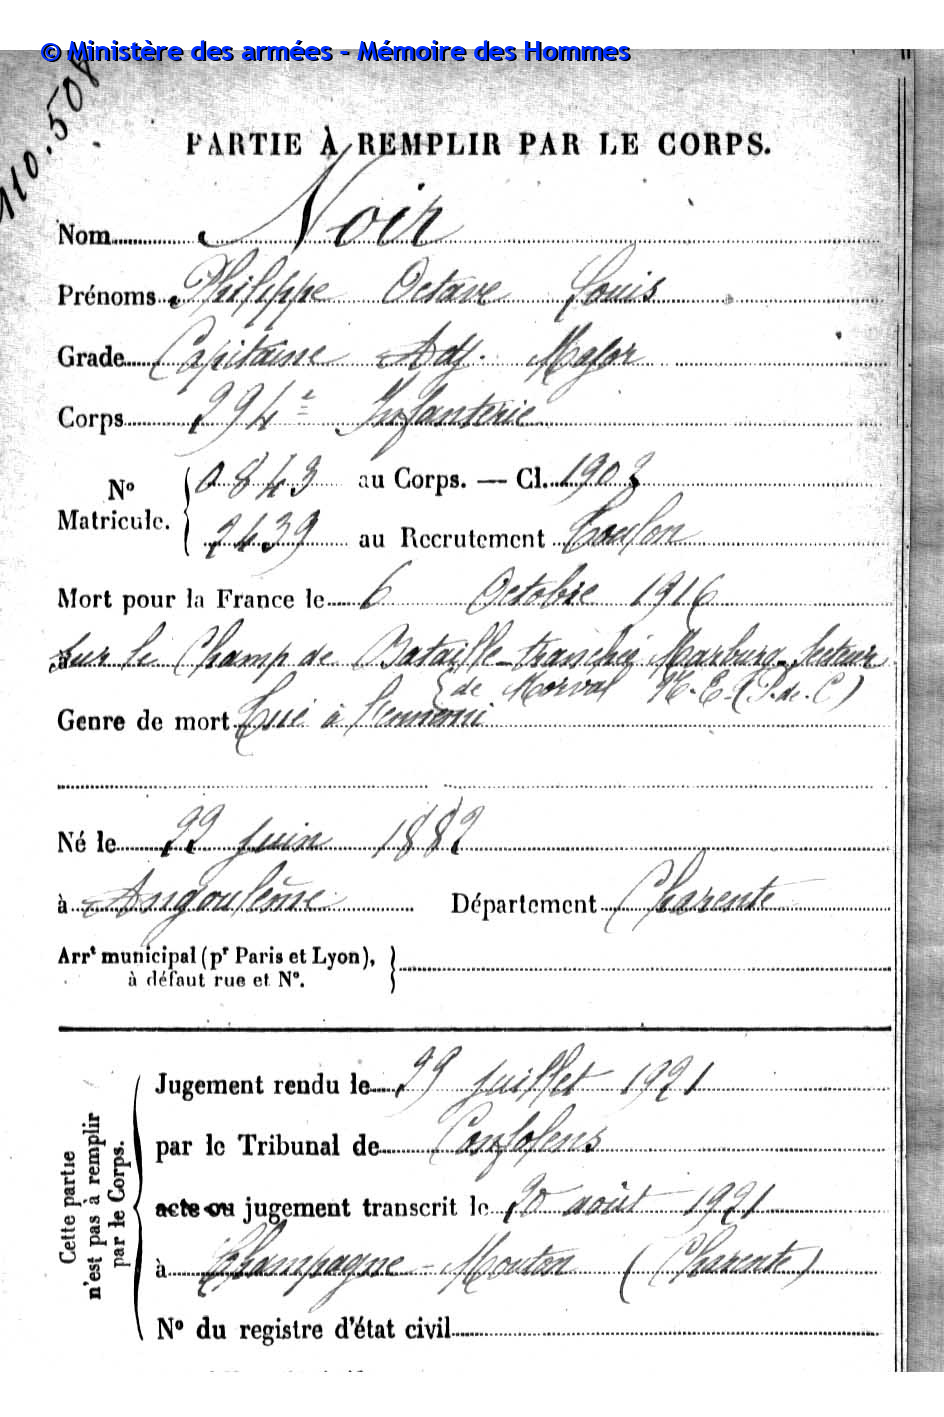 © Ministère des armées - Mémoire des Hommes
110.508
PARTIE À REMPLIR PAR LE CORPS.
Nom Noir
Prénoms Philippe Octave Louis
Grade Capitaine Adj. Major
Corps 294e Infanterie
No Matricule. 0843 au Corps. — Cl. 1902
2439 au Recrutement Toulon
Mort pour la France le 6 Octobre 1916
à Sur le Champ de Bataille - tranchée Marburg - Secteur
(de Morval N. E. (P. de. C)
Genre de mort Tué à l'ennemi
Né le 22 Juin 1882
à Angoulême Département Charente
Arrt municipal (pr Paris et Lyon),
à défaut rue et No.
Cette partie
n'est pas à remplir
par le Corps.
Jugement rendu le 29 juillet 1921
par le Tribunal de Confolens
acte ou jugement transcrit le 20 août 1921
à Champagne - Mouton (Charente)
No du registre d'état civil